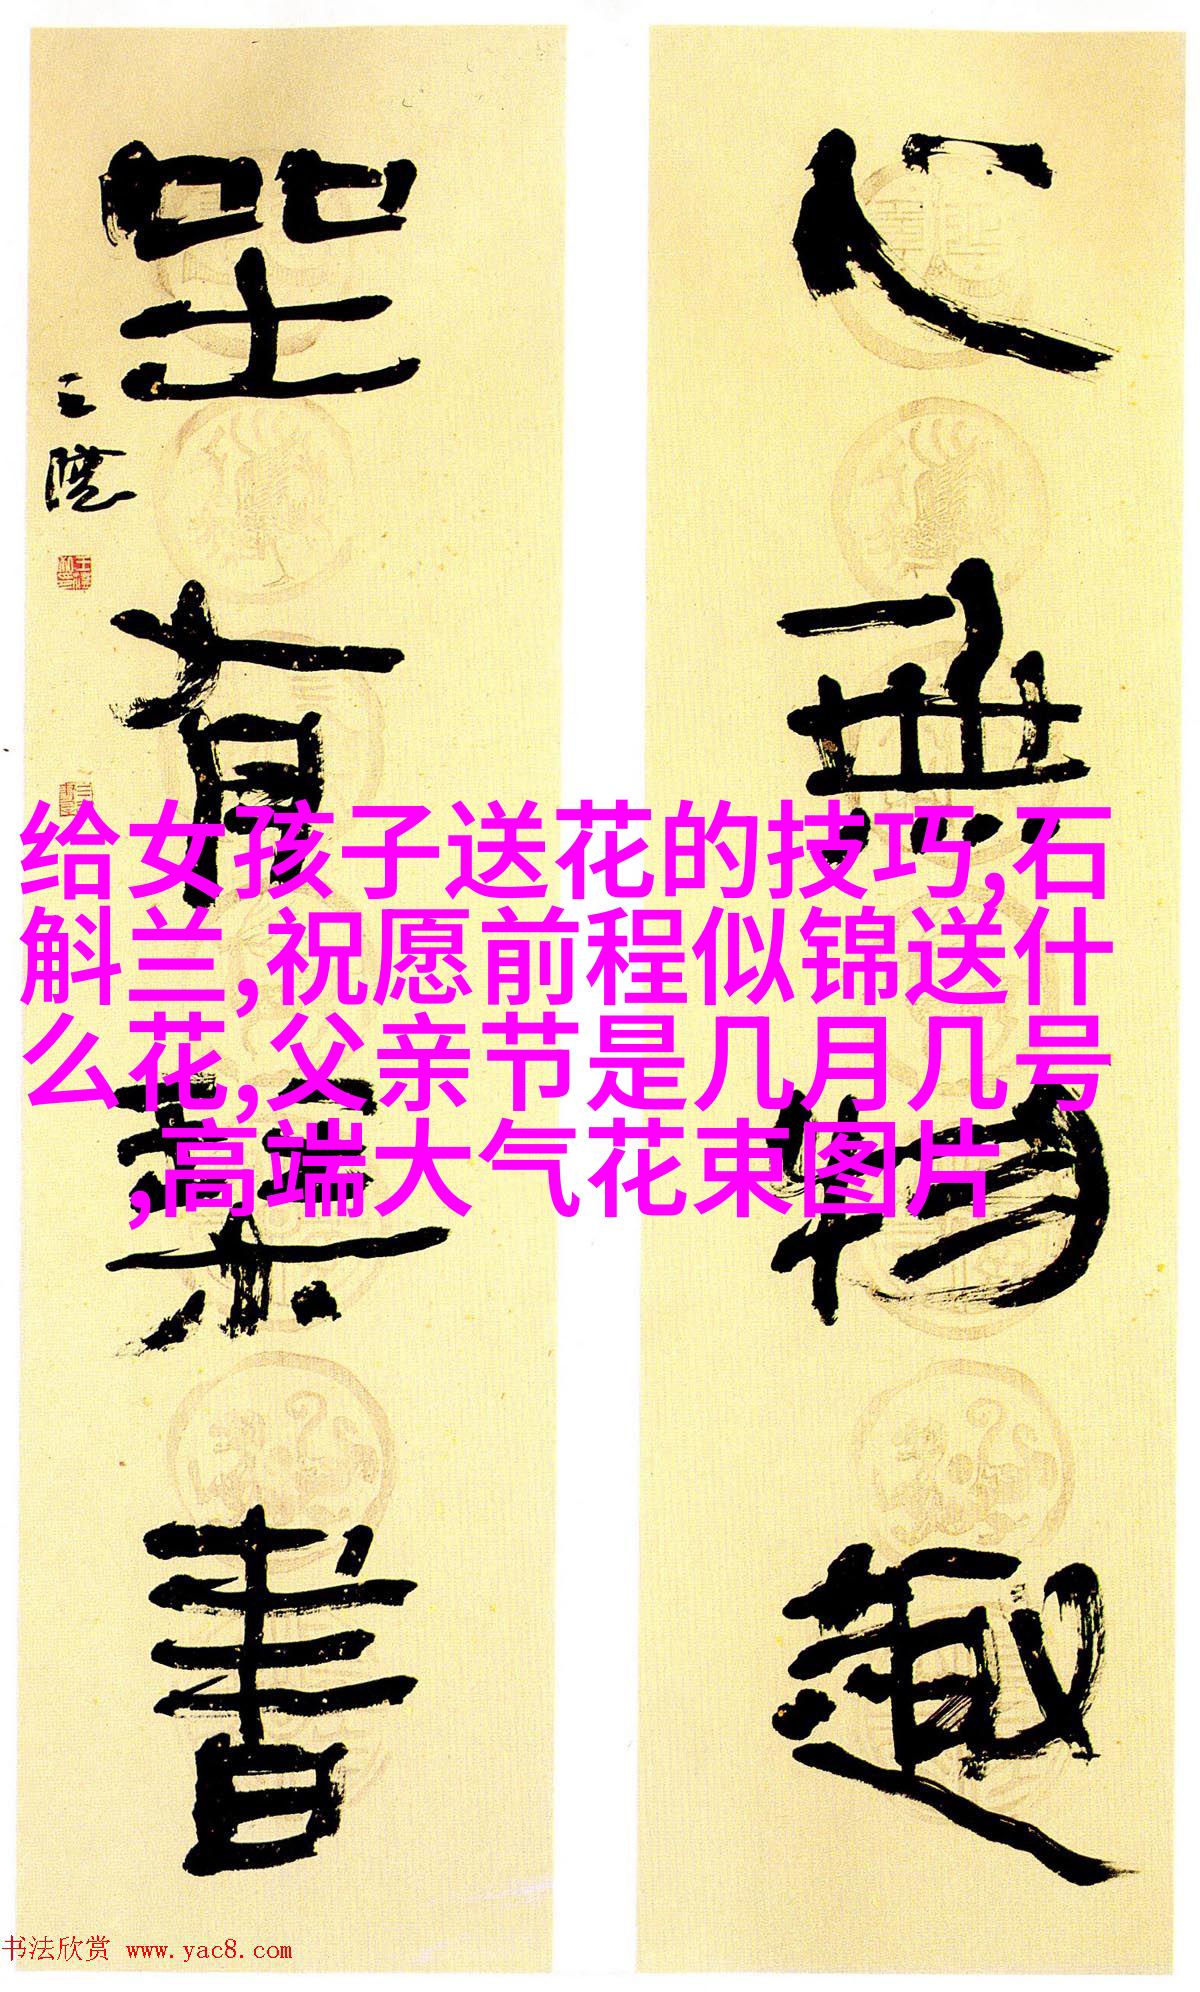 给女孩子送花的技巧,石
斛兰,祝愿前程似锦送什
么花,父亲节是几月几号
,高端大气花束图片
心無物趣
坐有 書
书法欣赏 www.yac8.com